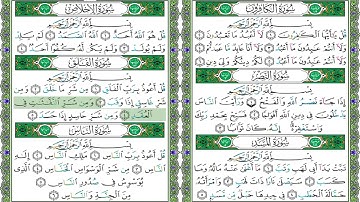 سُورَةُ الكَافِرُونَ
بِسْمِ اللَّهِ الرَّحْمَٰنِ الرَّحِيمِ
قُلْ يَٰأَيُّهَا الْكَٰفِرُونَ ١ لَا أَعْبُدُ مَا تَعْبُدُونَ ٢
وَلَا أَنتُمْ عَٰبِدُونَ مَا أَعْبُدُ ٣ وَلَا أَنَا عَابِدٌ مَّا عَبَدتُّمْ ٤
وَلَا أَنتُمْ عَٰبِدُونَ مَا أَعْبُدُ ٥ لَكُمْ دِينُكُمْ وَلِيَ دِينِ ٦
سُورَةُ النَّصْرِ
بِسْمِ اللَّهِ الرَّحْمَٰنِ الرَّحِيمِ
إِذَا جَاءَ نَصْرُ اللَّهِ وَالْفَتْحُ ١ وَرَأَيْتَ النَّاسَ
يَدْخُلُونَ فِي دِينِ اللَّهِ أَفْوَاجًا ٢ فَسَبِّحْ بِحَمْدِ رَبِّكَ
وَاسْتَغْفِرْهُ إِنَّهُ كَانَ تَوَّابًا ٣
سُورَةُ المَسَدِ
بِسْمِ اللَّهِ الرَّحْمَٰنِ الرَّحِيمِ
تَبَّتْ يَدَا أَبِي لَهَبٍ وَتَبَّ ١ مَا أَغْنَىٰ عَنْهُ مَالُهُ وَمَا
كَسَبَ ٢ سَيَصْلَىٰ نَارًا ذَاتَ لَهَبٍ ٣ وَامْرَأَتُهُ
حَمَّالَةَ الْحَطَبِ ٤ فِي جِيدِهَا حَبْلٌ مِّن مَّسَدٍ ٥
سُورَةُ الإِخْلَاصِ
بِسْمِ اللَّهِ الرَّحْمَٰنِ الرَّحِيمِ
قُلْ هُوَ اللَّهُ أَحَدٌ ١ اللَّهُ الصَّمَدُ ٢ لَمْ يَلِدْ
وَلَمْ يُولَدْ ٣ وَلَمْ يَكُن لَّهُ كُفُوًا أَحَدٌ ٤
سُورَةُ الفَلَقِ
بِسْمِ اللَّهِ الرَّحْمَٰنِ الرَّحِيمِ
قُلْ أَعُوذُ بِرَبِّ الْفَلَقِ ١ مِن شَرِّ مَا خَلَقَ ٢ وَمِن
شَرِّ غَاسِقٍ إِذَا وَقَبَ ٣ وَمِن شَرِّ النَّفَّٰثَٰتِ فِي
الْعُقَدِ ٤ وَمِن شَرِّ حَاسِدٍ إِذَا حَسَدَ ٥
سُورَةُ النَّاسِ
بِسْمِ اللَّهِ الرَّحْمَٰنِ الرَّحِيمِ
قُلْ أَعُوذُ بِرَبِّ النَّاسِ ١ مَلِكِ النَّاسِ ٢ إِلَٰهِ
النَّاسِ ٣ مِن شَرِّ الْوَسْوَاسِ الْخَنَّاسِ ٤ الَّذِي
يُوَسْوِسُ فِي صُدُورِ النَّاسِ ٥
مِنَ الْجِنَّةِ وَالنَّاسِ ٦